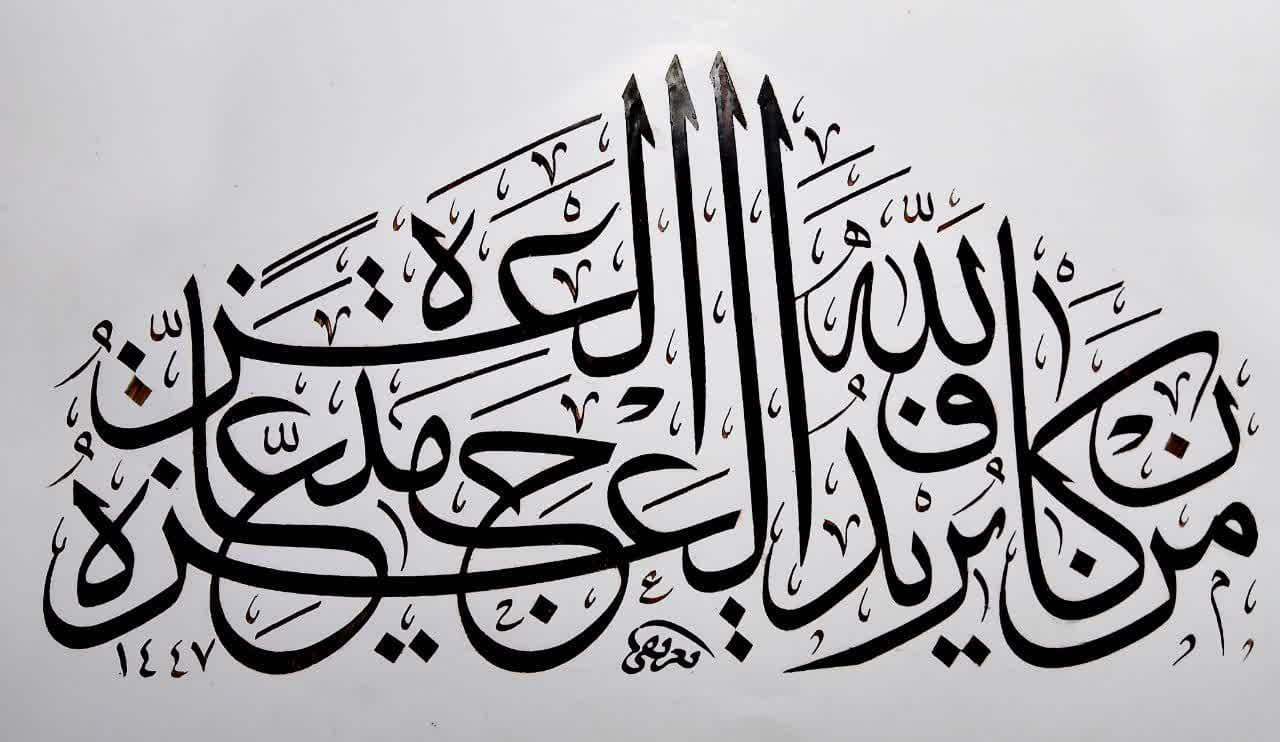 مَنْ كَانَ يُرِيدُ الْعِزَّةَ فَلِلَّهِ الْعِزَّةُ جَمِيعًا
١٤٤٧